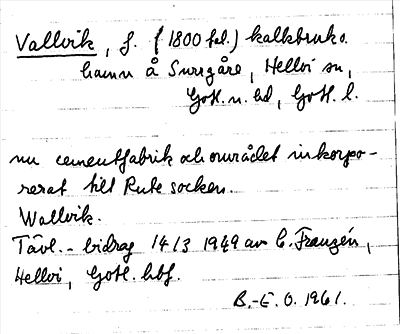 Vallvik, f. (1800 tal.) kalkbruk o.
hamn å Smrgåre, Hellvi sn,
Gotl. n. hd, Gotl. l.
nu cementfabrik och området inkorpo-
rerat till Rute socken.
Wallvik.
Tävl.-bidrag 14/3 1949 av C. Franzén,
Hellvi, Gotl. hbf.
B.-E. O. 1961.